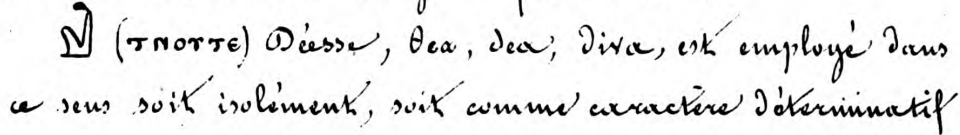 (ⲧⲛⲟⲩⲧⲉ) Déesse, Dea, dea, diva, est employé dans
ce sens soit isolément, soit comme caractère déterminatif